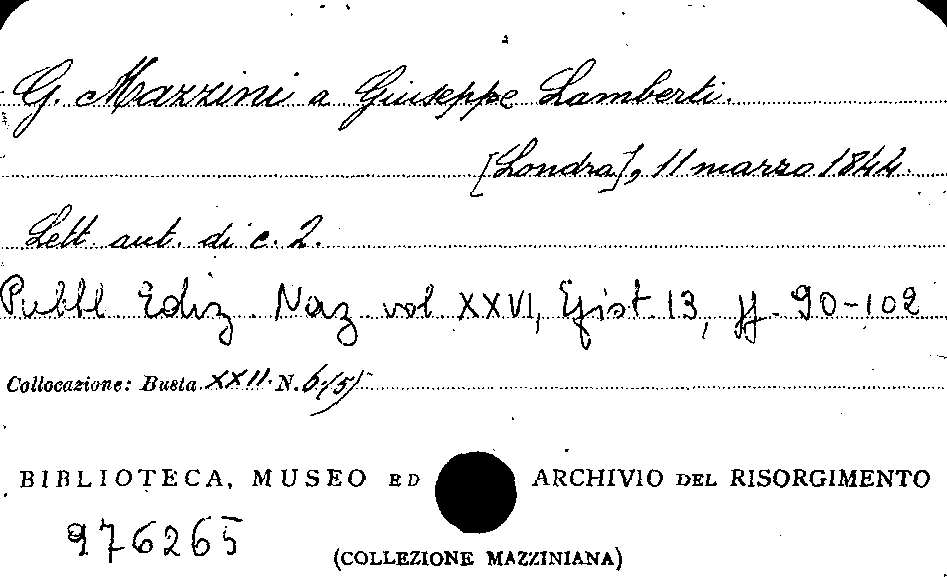 G. Mazzini a Giuseppe Lamberti.
[Londra], 11 marzo 1844.
Lett. aut. di c. 2.
Pubbl Ediz. Naz vol XXVI, Epist. 13, pp. 90-102
Collocazione: Busta XXII. N. 6/5/
BIBLIOTECA, MUSEO ED ARCHIVIO DEL RISORGIMENTO
976265
(COLLEZIONE MAZZINIANA)